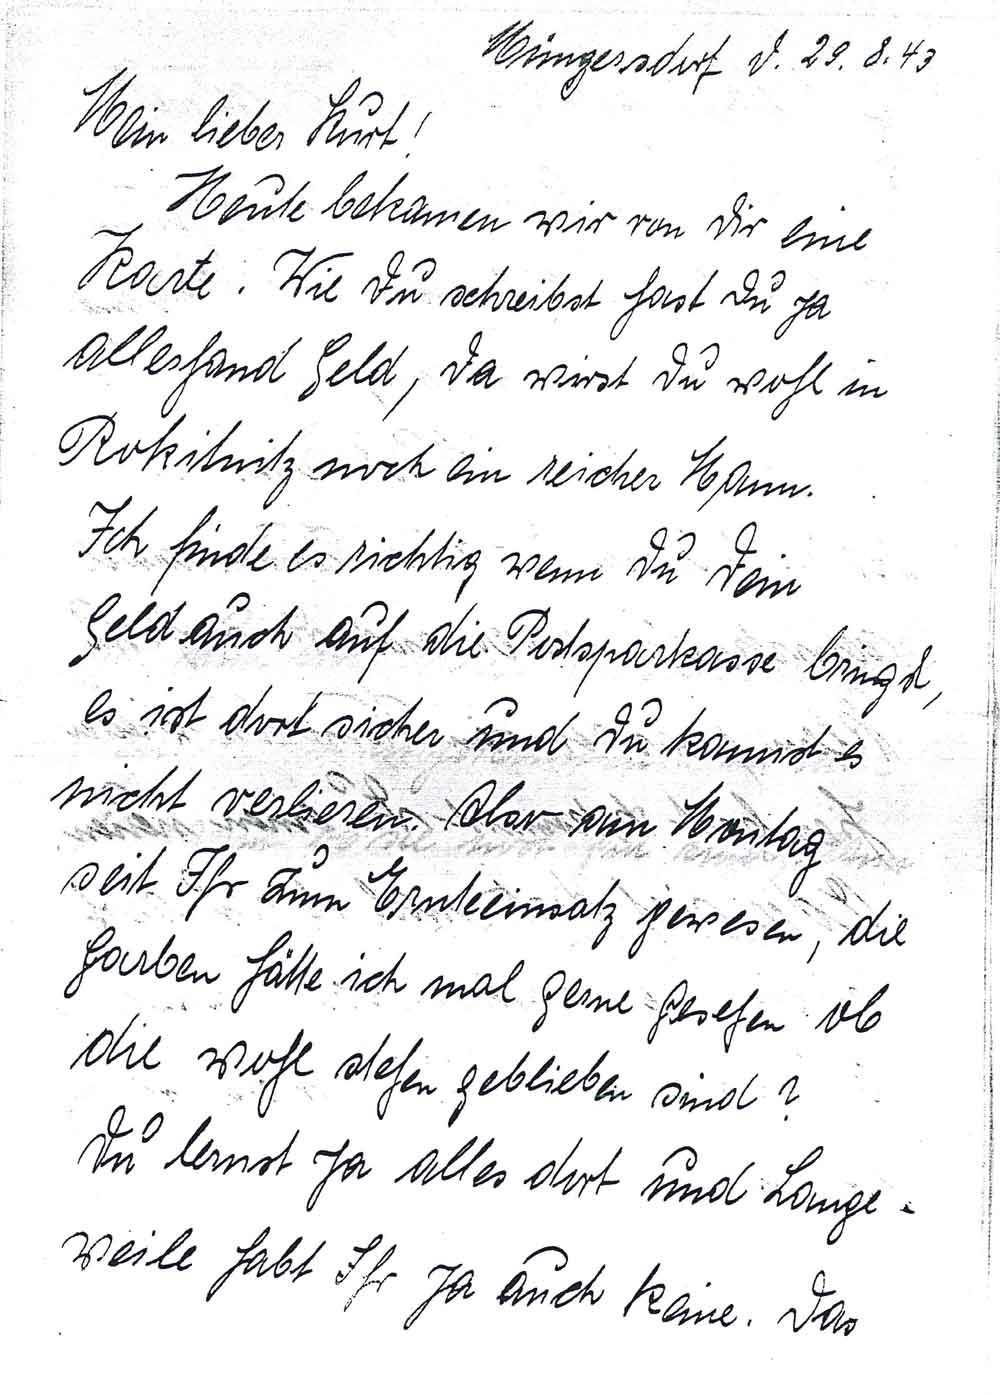 Müngersdorf d. 29. 8. 43
Mein lieber Kurt!
Heute bekamen wir von Dir eine
Karte. Wie Du schreibst hast Du ja
allerhand Geld, da wirst Du wohl in
Rokitnitz noch ein reicher Mann.
Ich finde es richtig wenn Du Dein
Geld auch auf die Postsparkasse bringst,
es ist dort sicher und Du kannst es
nicht verlieren. Also am Montag
seit Ihr zum Ernteeinsatz gewesen, die
Garben hätte ich mal gerne gesehen ob
die wohl stehen geblieben sind?
Du lernst ja alles dort und Lange-
weile habt Ihr ja auch keine. Das